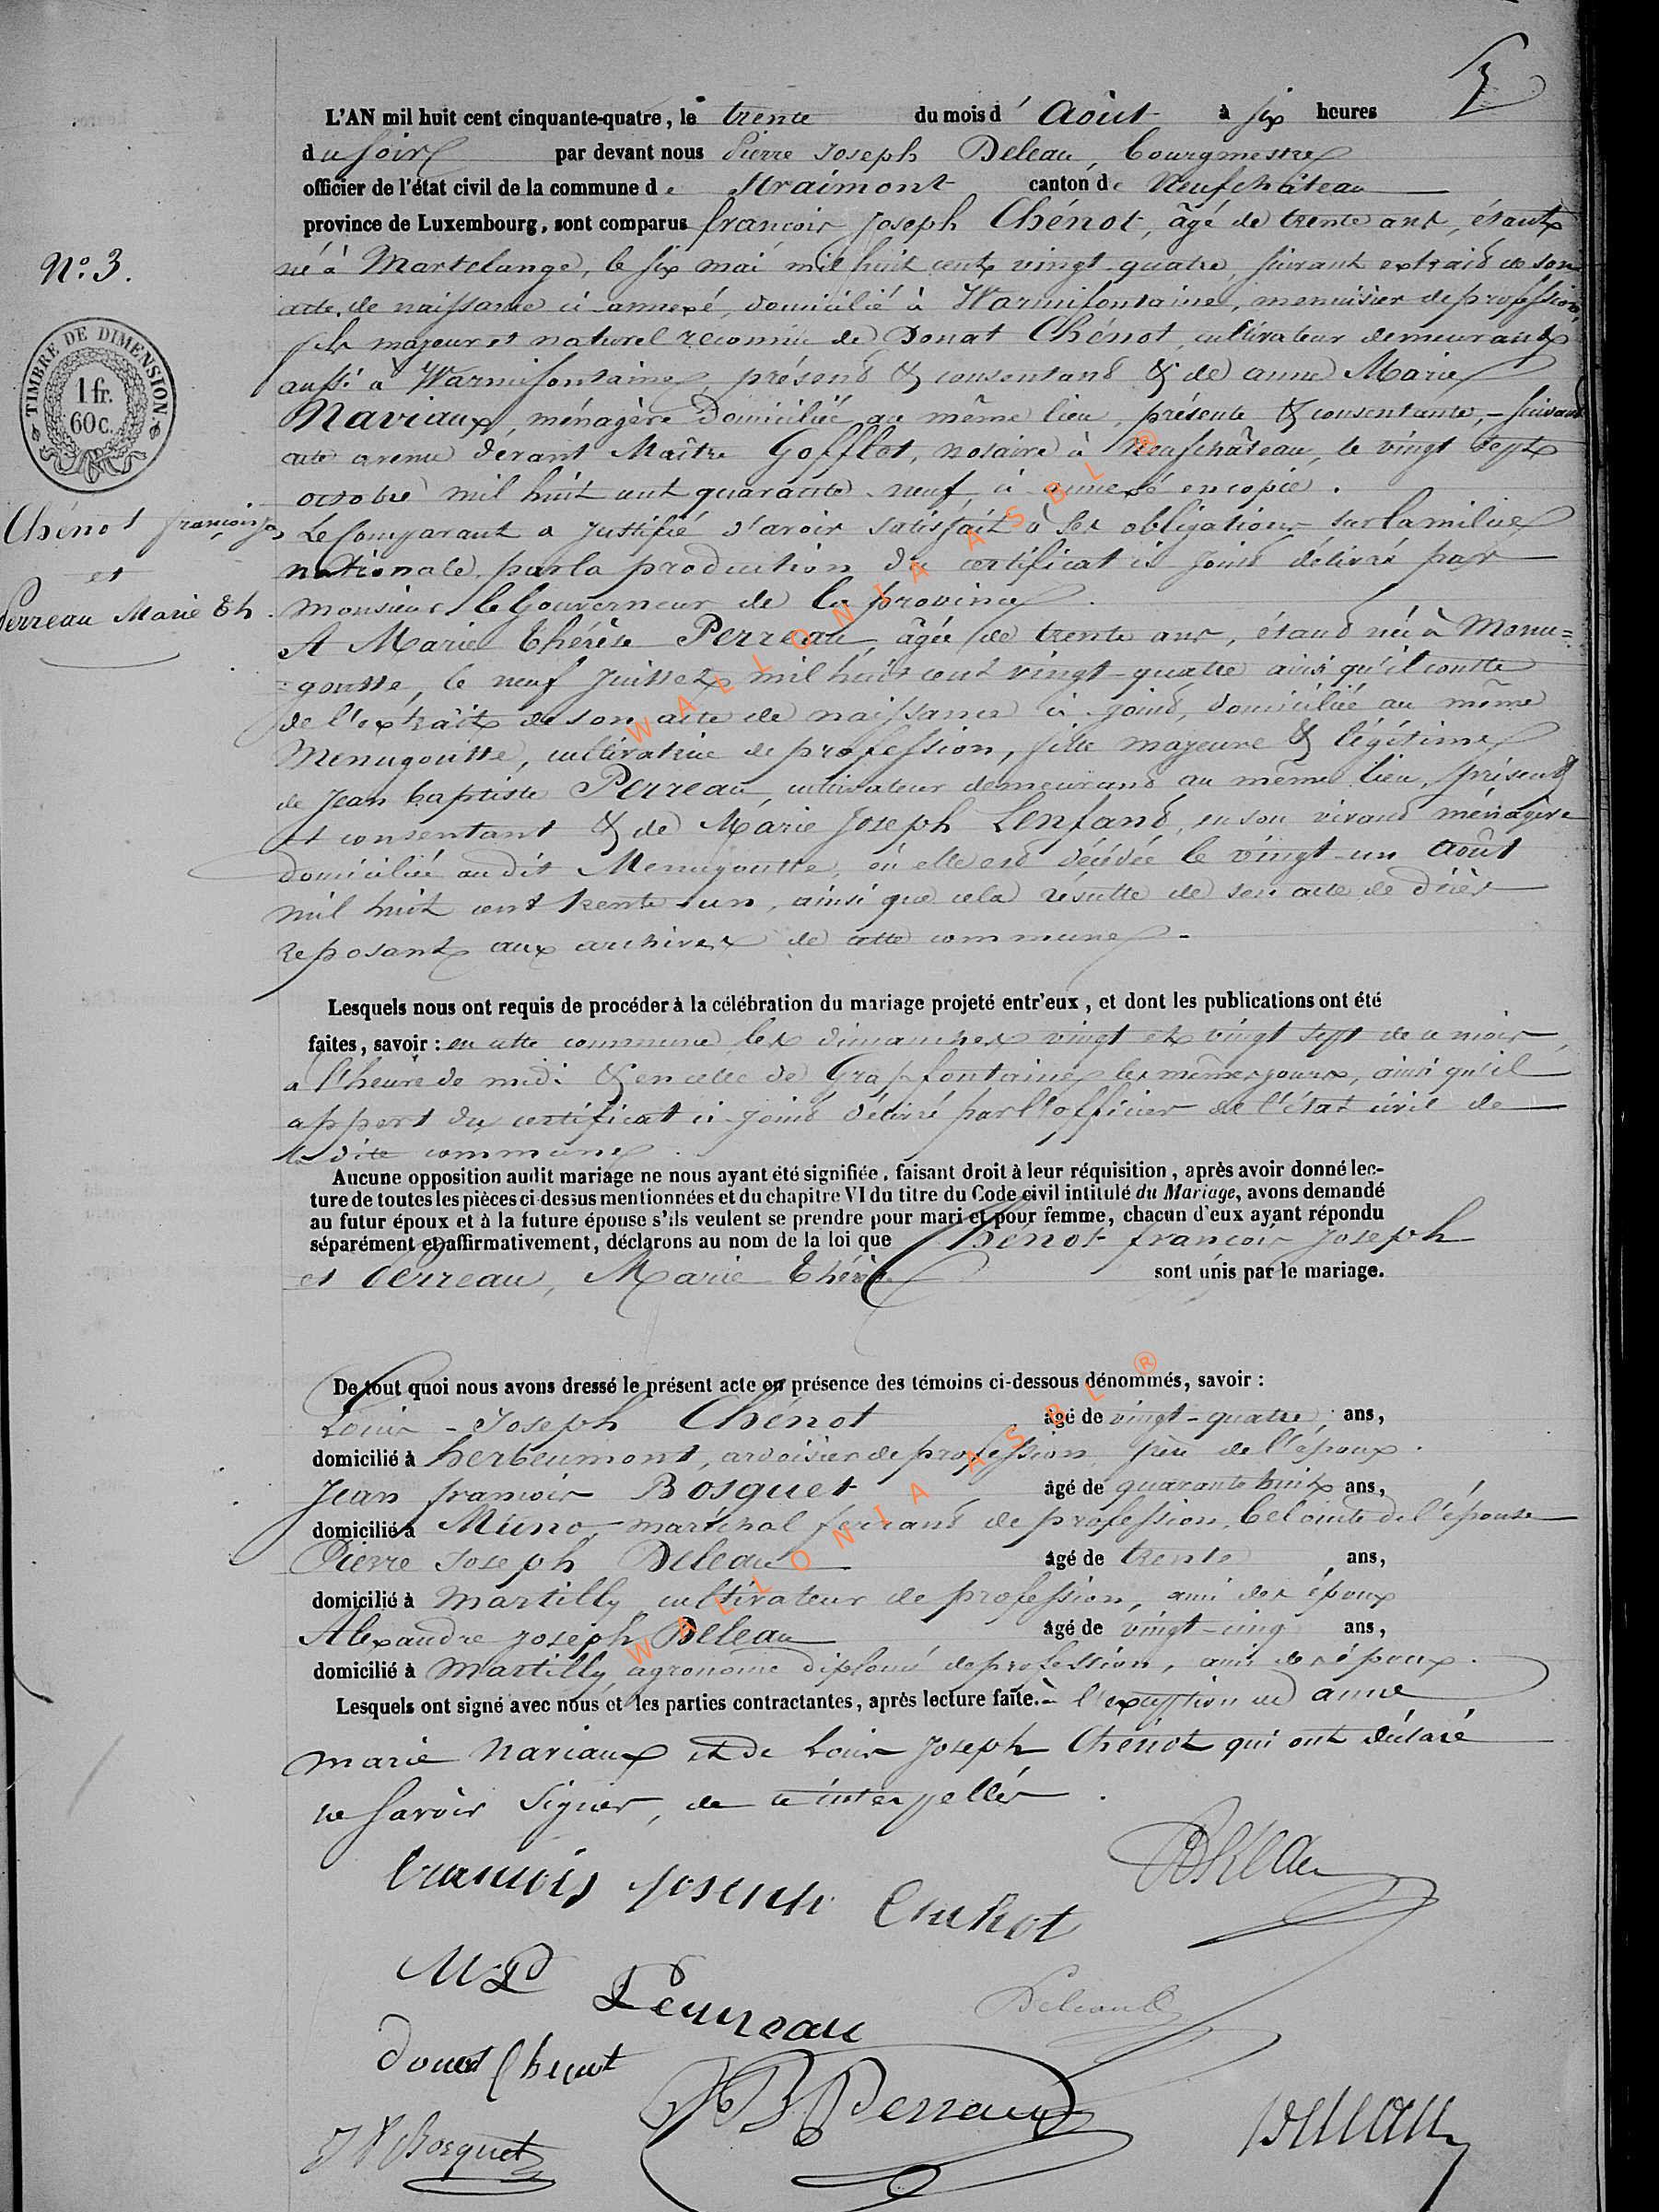 5
L'AN mil huit cent cinquante-quatre, le trente du mois d' Août à six heures
du soir par devant nous Pierre Joseph Deleau, bourgmestre
officier de l'état civil de la commune de Straimont canton de Neufchâteau
province de Luxembourg, sont comparus françois Joseph Chénot, âgé de trente ans, étant
né à Martelange, le six mai mil huit cent vingt-quatre, suivant extrait de son
N° 3.
acte de naissance ci-annexé, domicilié à Warmifontaine, menuisier de profession,
fils majeur et naturel reconnu de Donat Chénot, cultivateur demeurant
TIMBRE DE DIMENSION.
1 fr.
60 c.
aussi à Warmifontaine, présent & consentant & de anne Marie
Naviaux, ménagère domiciliée au même lieu, présente & consentante, - suivant
acte avenu devant Maître Gofflot, notaire à Neufchâteau, le vingt sept
octobre mil huit cent quarante-neuf, ci-annexé en copie.
Chénot françois Jh
et
Perreau Marie Th.
Le comparant a justifié d'avoir satisfait à ses obligations sur la milice
nationale par la production du certificat ci joint délivré par
monsieur le Gouverneur de la province.
Et Marie Thérèse Perreau, âgée de trente ans, étant née à Menu=
=goutte, le neuf juillet mil huit cent vingt-quatre ainsi qu'il conste
de l'extrait de son acte de naissance ci-joint, domiciliée au même
Menugoutte, cultivatrice de profession, fille majeure & légitime
de Jean baptiste Perreau, cultivateur demeurant au même lieu, présent
et consentant & de Marie Joseph Lenfant, en son vivant ménagère
domiciliée audit Menugoutte, où elle est décédée le vingt-un Août
mil huit cent trente-un, ainsi que cela résulte de son acte de décès
reposant aux archives de cette commune.-
Lesquels nous ont requis de procéder à la célébration du mariage projeté entr'eux, et dont les publications ont été
faites, savoir : en cette commune les dimanches vingt et vingt sept de ce mois,
a l'heure de midi & en celle de Grapfontaine les mêmes jours, ainsi qu'il
appert du certificat ci-joint délivré par l'officier de l'état civil de
la dite commune.
Aucune opposition audit mariage ne nous ayant été signifiée, faisant droit à leur réquisition, après avoir donné lec-
ture de toutes les pièces ci-dessus mentionnées et du chapitre VI du titre du Code civil intitulé du Mariage, avons demandé
au futur époux et à la future épouse s'ils veulent se prendre pour mari et pour femme, chacun d'eux ayant répondu
séparément et affirmativement, déclarons au nom de la loi que Chénot françois Joseph
et Perreau, Marie Thérèse sont unis par le mariage.
De tout quoi nous avons dressé le présent acte en présence des témoins ci-dessous dénommés, savoir :
Louis - Joseph Chénot âgé de vingt-quatre ans,
domicilié à herbeumont, ardoisier de profession, frère de l'époux.
Jean françois Bosquet âgé de quarante huit ans,
domicilié à Muno, maréchal ferrant de profession, bel oncle de l'épouse
Pierre Joseph Deleau âgé de trente ans,
domicilié à Martilly cultivateur de profession, ami des époux
Alexandre Joseph Deleau âgé de vingt-cinq ans,
domicilié à Martilly agronome diplomé de profession, ami des époux.
Lesquels ont signé avec nous et les parties contractantes, après lecture faite. à l'exception de anne
marie Naviaux et de Louis Joseph Chénot qui ont déclaré
ne savoir signer, de ce interpellés.
francois joseph Chenot
Deleau
M T Perreau
Deleau
Donat Chenot
J B Perreau
J F Bosquet
Deleau
WALLONIA ASBL ®
WALLONIA ASBL ®